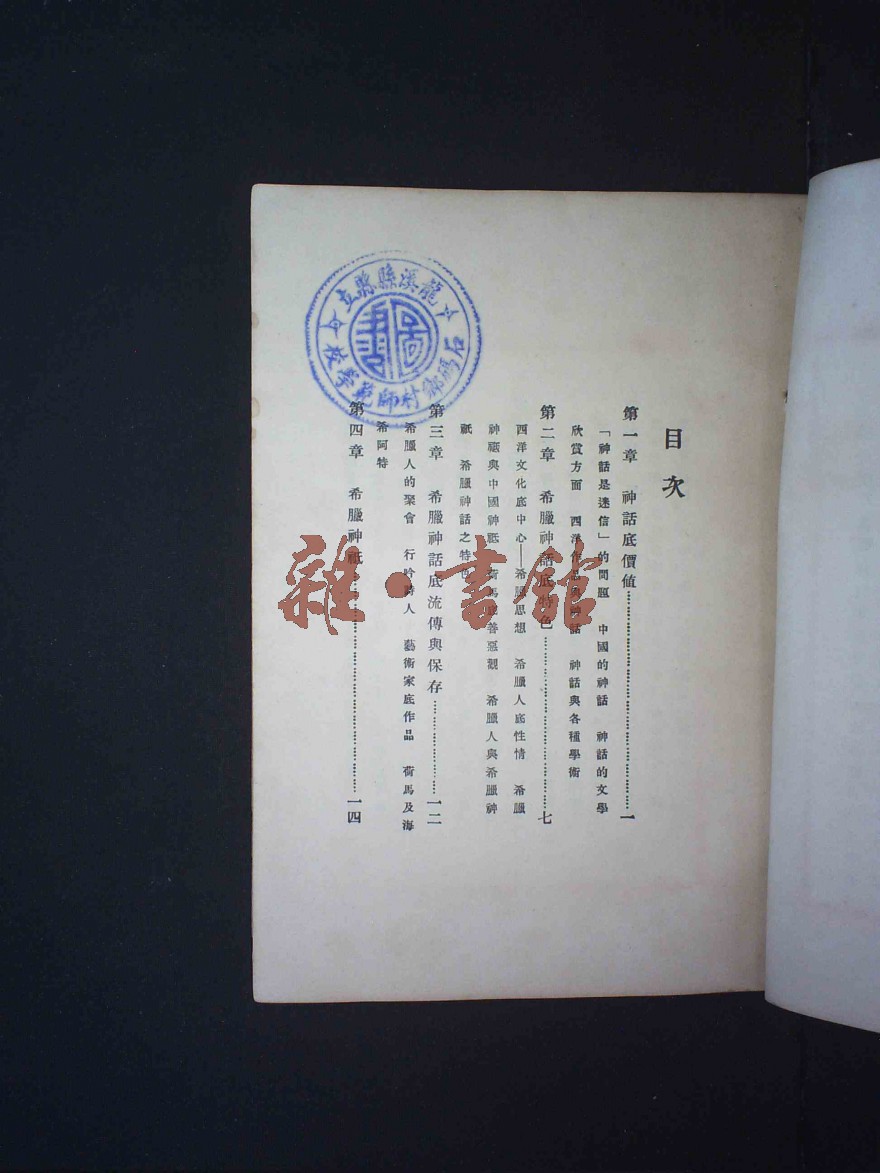 目次
第一章　神話底價値……一
「神話是迷信」的問題　中國的神話　神話的文學
欣賞方面　西洋作品與神話　神話與各種學術
第二章　希臘神話底特色……七
西洋文化底中心——希臘思想　希臘人底性情　希臘
神祇與中國神祇　荷馬底善惡觀　希臘人與希臘神
祇　希臘神話之特色
第三章　希臘神話底流傳與保存……一二
希臘人的聚會　行吟詩人　藝術家底作品　荷馬及海
希阿特
第四章　希臘神祇……一四
龍溪縣縣立
石碼鄉村師範學校
圖書
雜·書館